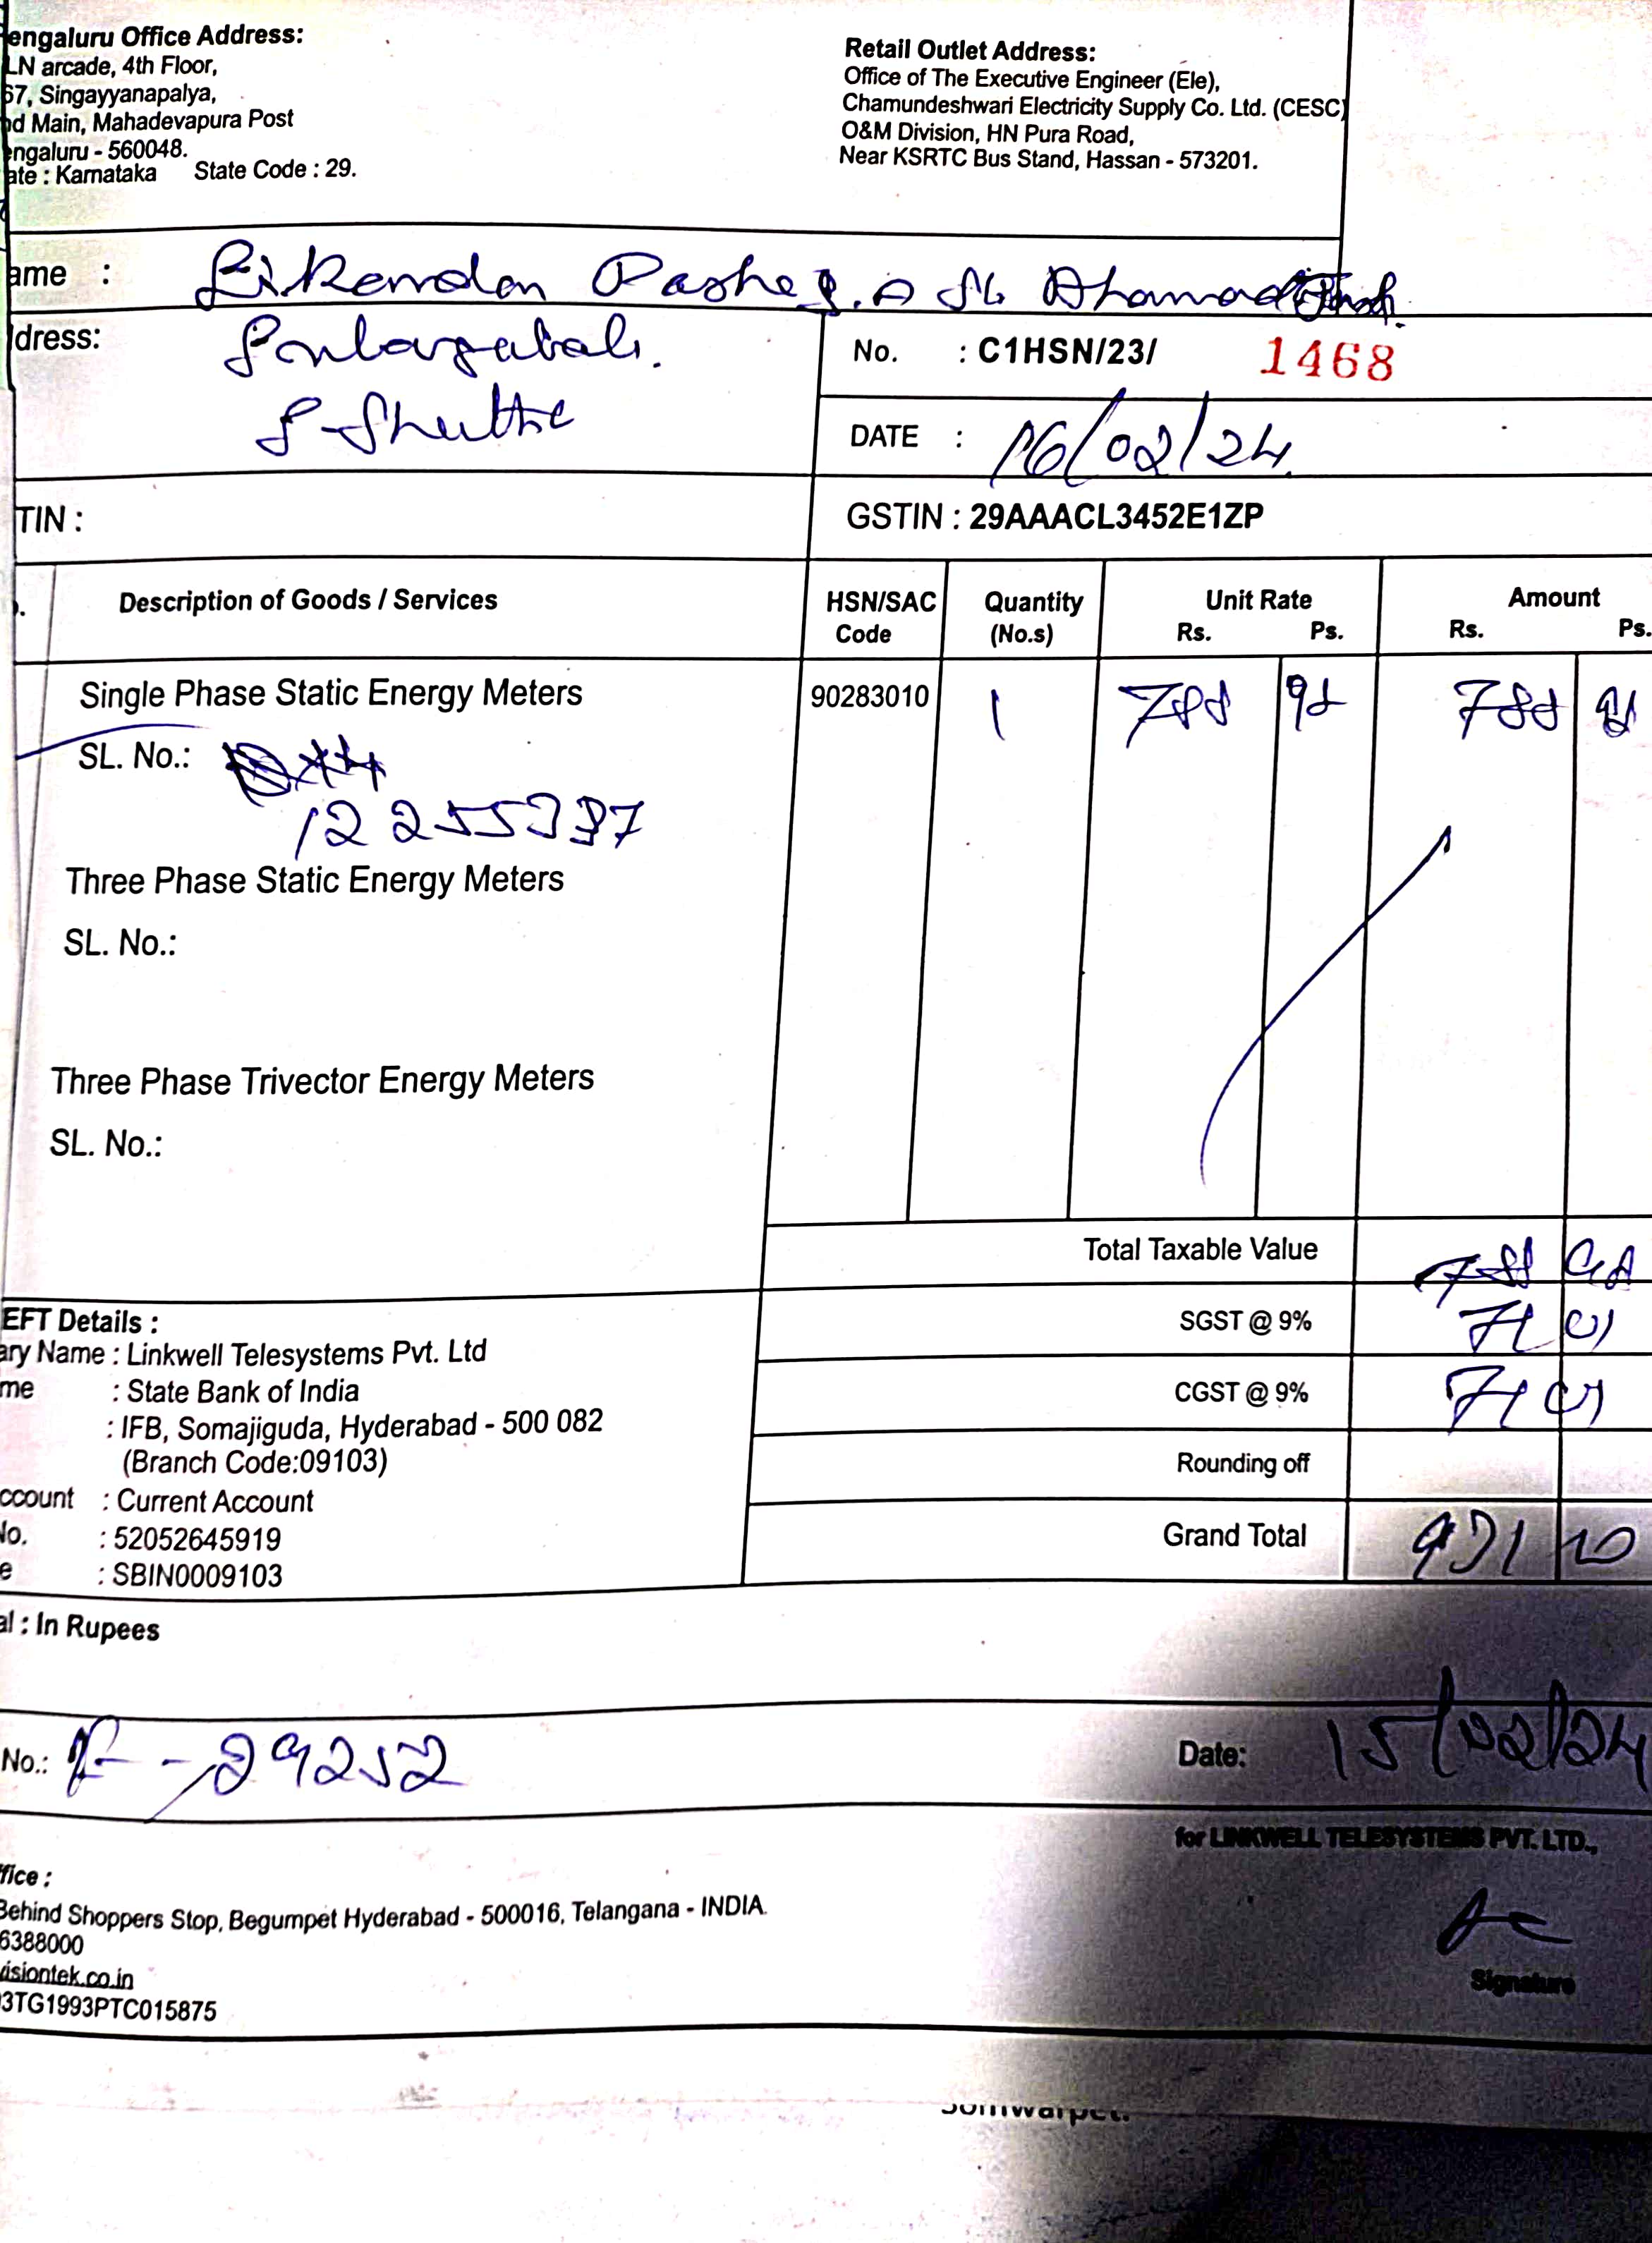 engaluru Office Address:
LN arcade, 4th Floor,
67, Singayyanapalya,
nd Main, Mahadevapura Post
engaluru - 560048.
ate : Karnataka State Code : 29.
Retail Outlet Address:
Office of The Executive Engineer (Ele),
Chamundeshwari Electricity Supply Co. Ltd. (CESC)
O&M Division, HN Pura Road,
Near KSRTC Bus Stand, Hassan - 573201.
ame :
dress:
No. : C1HSN/23/ 1468
DATE : 16/02/24
TIN :
GSTIN : 29AAACL3452E1ZP
Description of Goods / Services HSN/SAC Code Quantity (No.s) Unit Rate Rs. Ps. Amount Rs. Ps.
Single Phase Static Energy Meters 90283010 1 788 98 788 98
SL. No.:
12255337
Three Phase Static Energy Meters
SL. No.:
Three Phase Trivector Energy Meters
SL. No.:
Total Taxable Value 788 98
SGST @ 9% 71 01
CGST @ 9% 71 01
Rounding off
Grand Total 931 10
EFT Details :
ary Name : Linkwell Telesystems Pvt. Ltd
me : State Bank of India
: IFB, Somajiguda, Hyderabad - 500 082
(Branch Code:09103)
ccount : Current Account
No. : 52052645919
e : SBIN0009103
al : In Rupees
No.: 29252
Date: 15/02/24
for LINKWELL TELESYSTEMS PVT. LTD.,
Signature
ffice :
Behind Shoppers Stop, Begumpet Hyderabad - 500016, Telangana - INDIA.
6388000
visiontek.co.in
3TG1993PTC015875
Somwarpet.